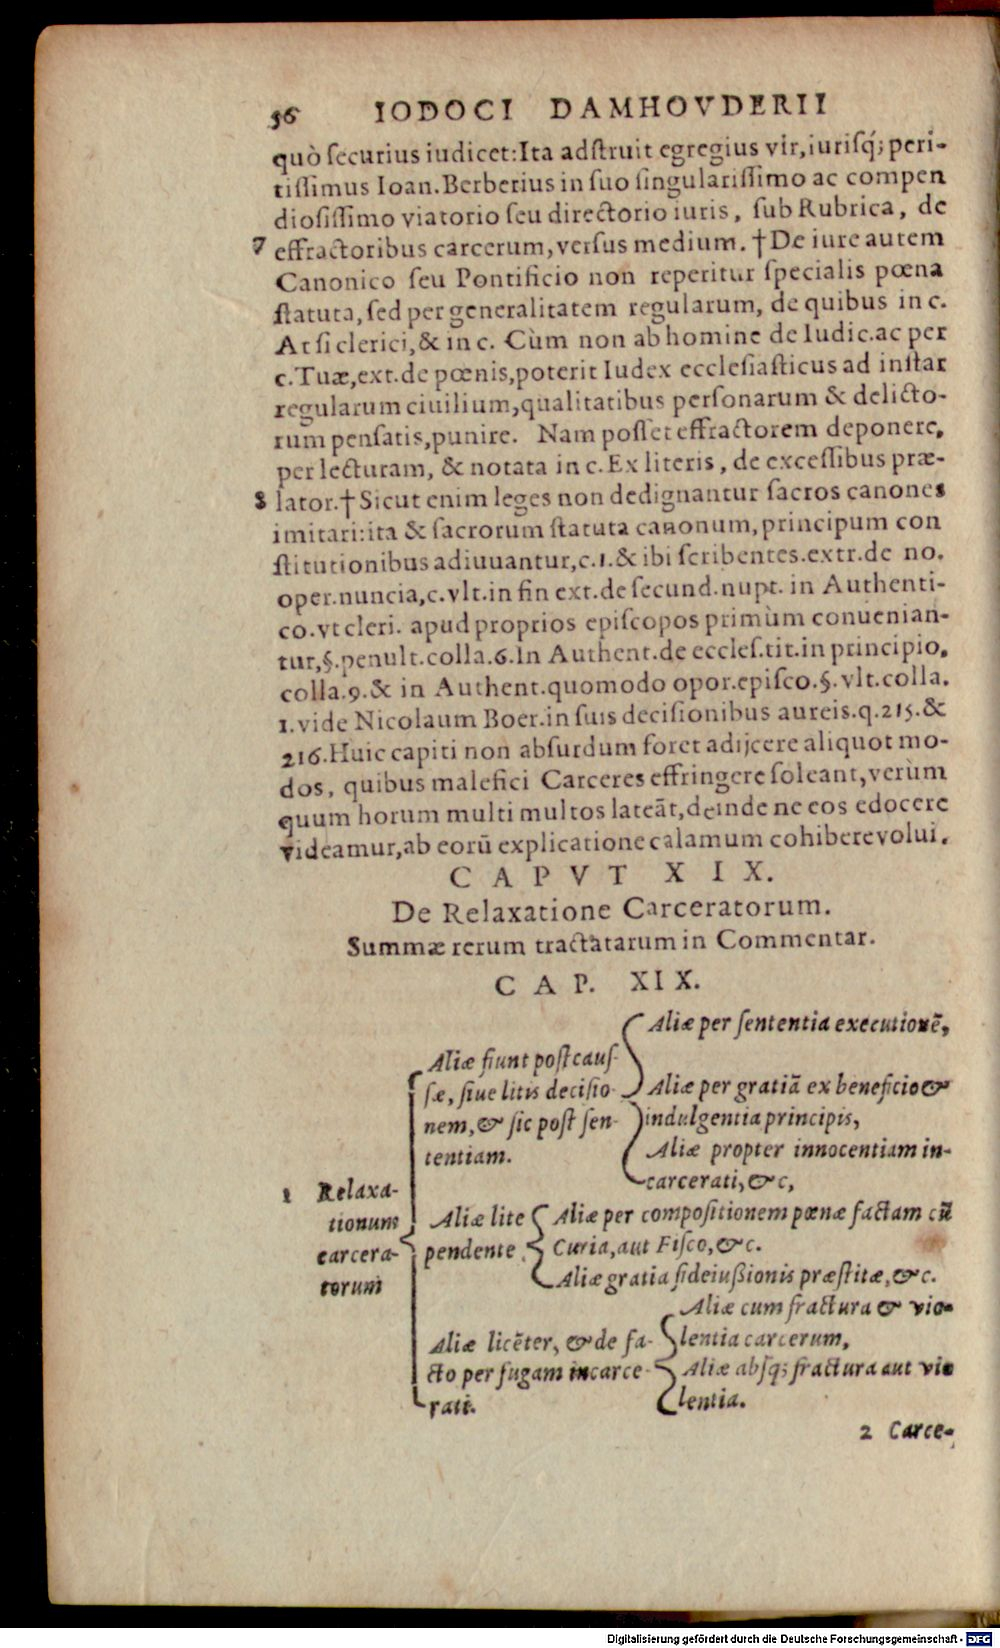 56 IODOCI DAMHOVDERII
quò ſecurius iudicet:Ita adſtruit egregius vir, iuriſq́; peri-
tiſſimus Ioan. Berberius in ſuo ſingulariſſimo ac compen
dioſiſſimo viatorio ſeu directorio iuris, ſub Rubrica, de
7 effractoribus carcerum, verſus medium. † De iure autem
Canonico ſeu Pontificio non reperitur ſpecialis pœna
ſtatuta, ſed per generalitatem regularum, de quibus in c.
At ſi clerici, & in c. Cùm non ab homine de Iudic. ac per
c. Tuæ, ext. de pœnis, poterit Iudex eccleſiaſticus ad inſtar
regularum ciuilium, qualitatibus perſonarum & delicto-
rum penſatis, punire. Nam poſſet effractorem deponere,
per lecturam, & notata in c. Ex literis, de exceſſibus præ-
8 lator. † Sicut enim leges non dedignantur ſacros canones
imitari: ita & ſacrorum ſtatuta canonum, principum con
ſtitutionibus adiuuantur, c. 1. & ibi ſcribentes. extr. de no.
oper. nuncia, c. vlt. in fin ext. de ſecund. nupt. in Authenti-
co. vt cleri. apud proprios epiſcopos primùm conuenian-
tur, §. penult. colla. 6. In Authent. de eccleſ. tit. in principio,
colla. 9. & in Authent. quomodo opor. epiſco. §. vlt. colla.
1. vide Nicolaum Boer. in ſuis deciſionibus aureis. q. 215. &
216. Huic capiti non abſurdum foret adijcere aliquot mo-
dos, quibus malefici Carceres effringere ſoleant, verùm
quum horum multi multos lateãt, deinde ne eos edocere
videamur, ab eorũ explicatione calamum cohibere volui.
CAPVT XIX.
De Relaxatione Carceratorum.
Summæ rerum tractatarum in Commentar.
CAP. XIX.
1 Relaxa-
tionum
carcera-
torum
Aliæ fiunt poſt cauſ-
ſæ, ſiue litis deciſio-
nem, & ſic poſt ſen-
tentiam.
Aliæ per ſententia executionẽ,
Aliæ per gratiã ex beneficio &
indulgentia principis,
Aliæ propter innocentiam in-
carcerati, &c,
Aliæ lite
pendente
Aliæ per compoſitionem pœnæ factam cũ
Curia, aut Fiſco, &c.
Aliæ gratia fideiußionis præſtitæ, &c.
Aliæ licẽter, & de fa-
cto per fugam incarce-
rati.
Aliæ cum fractura & vio-
lentia carcerum,
Aliæ abſq; fractura aut vio
lentia.
2 Carce-
Digitalisierung gefördert durch die Deutsche Forschungsgemeinschaft - DFG